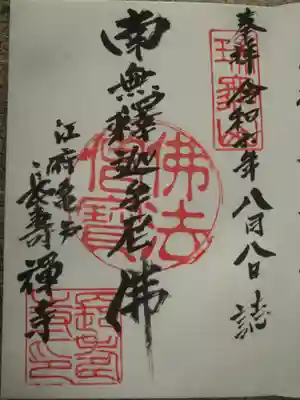 奉拝 令和六年八月八日 誌
南無釋迦牟尼佛
江府亀戸
長壽禅寺
佛法僧寳